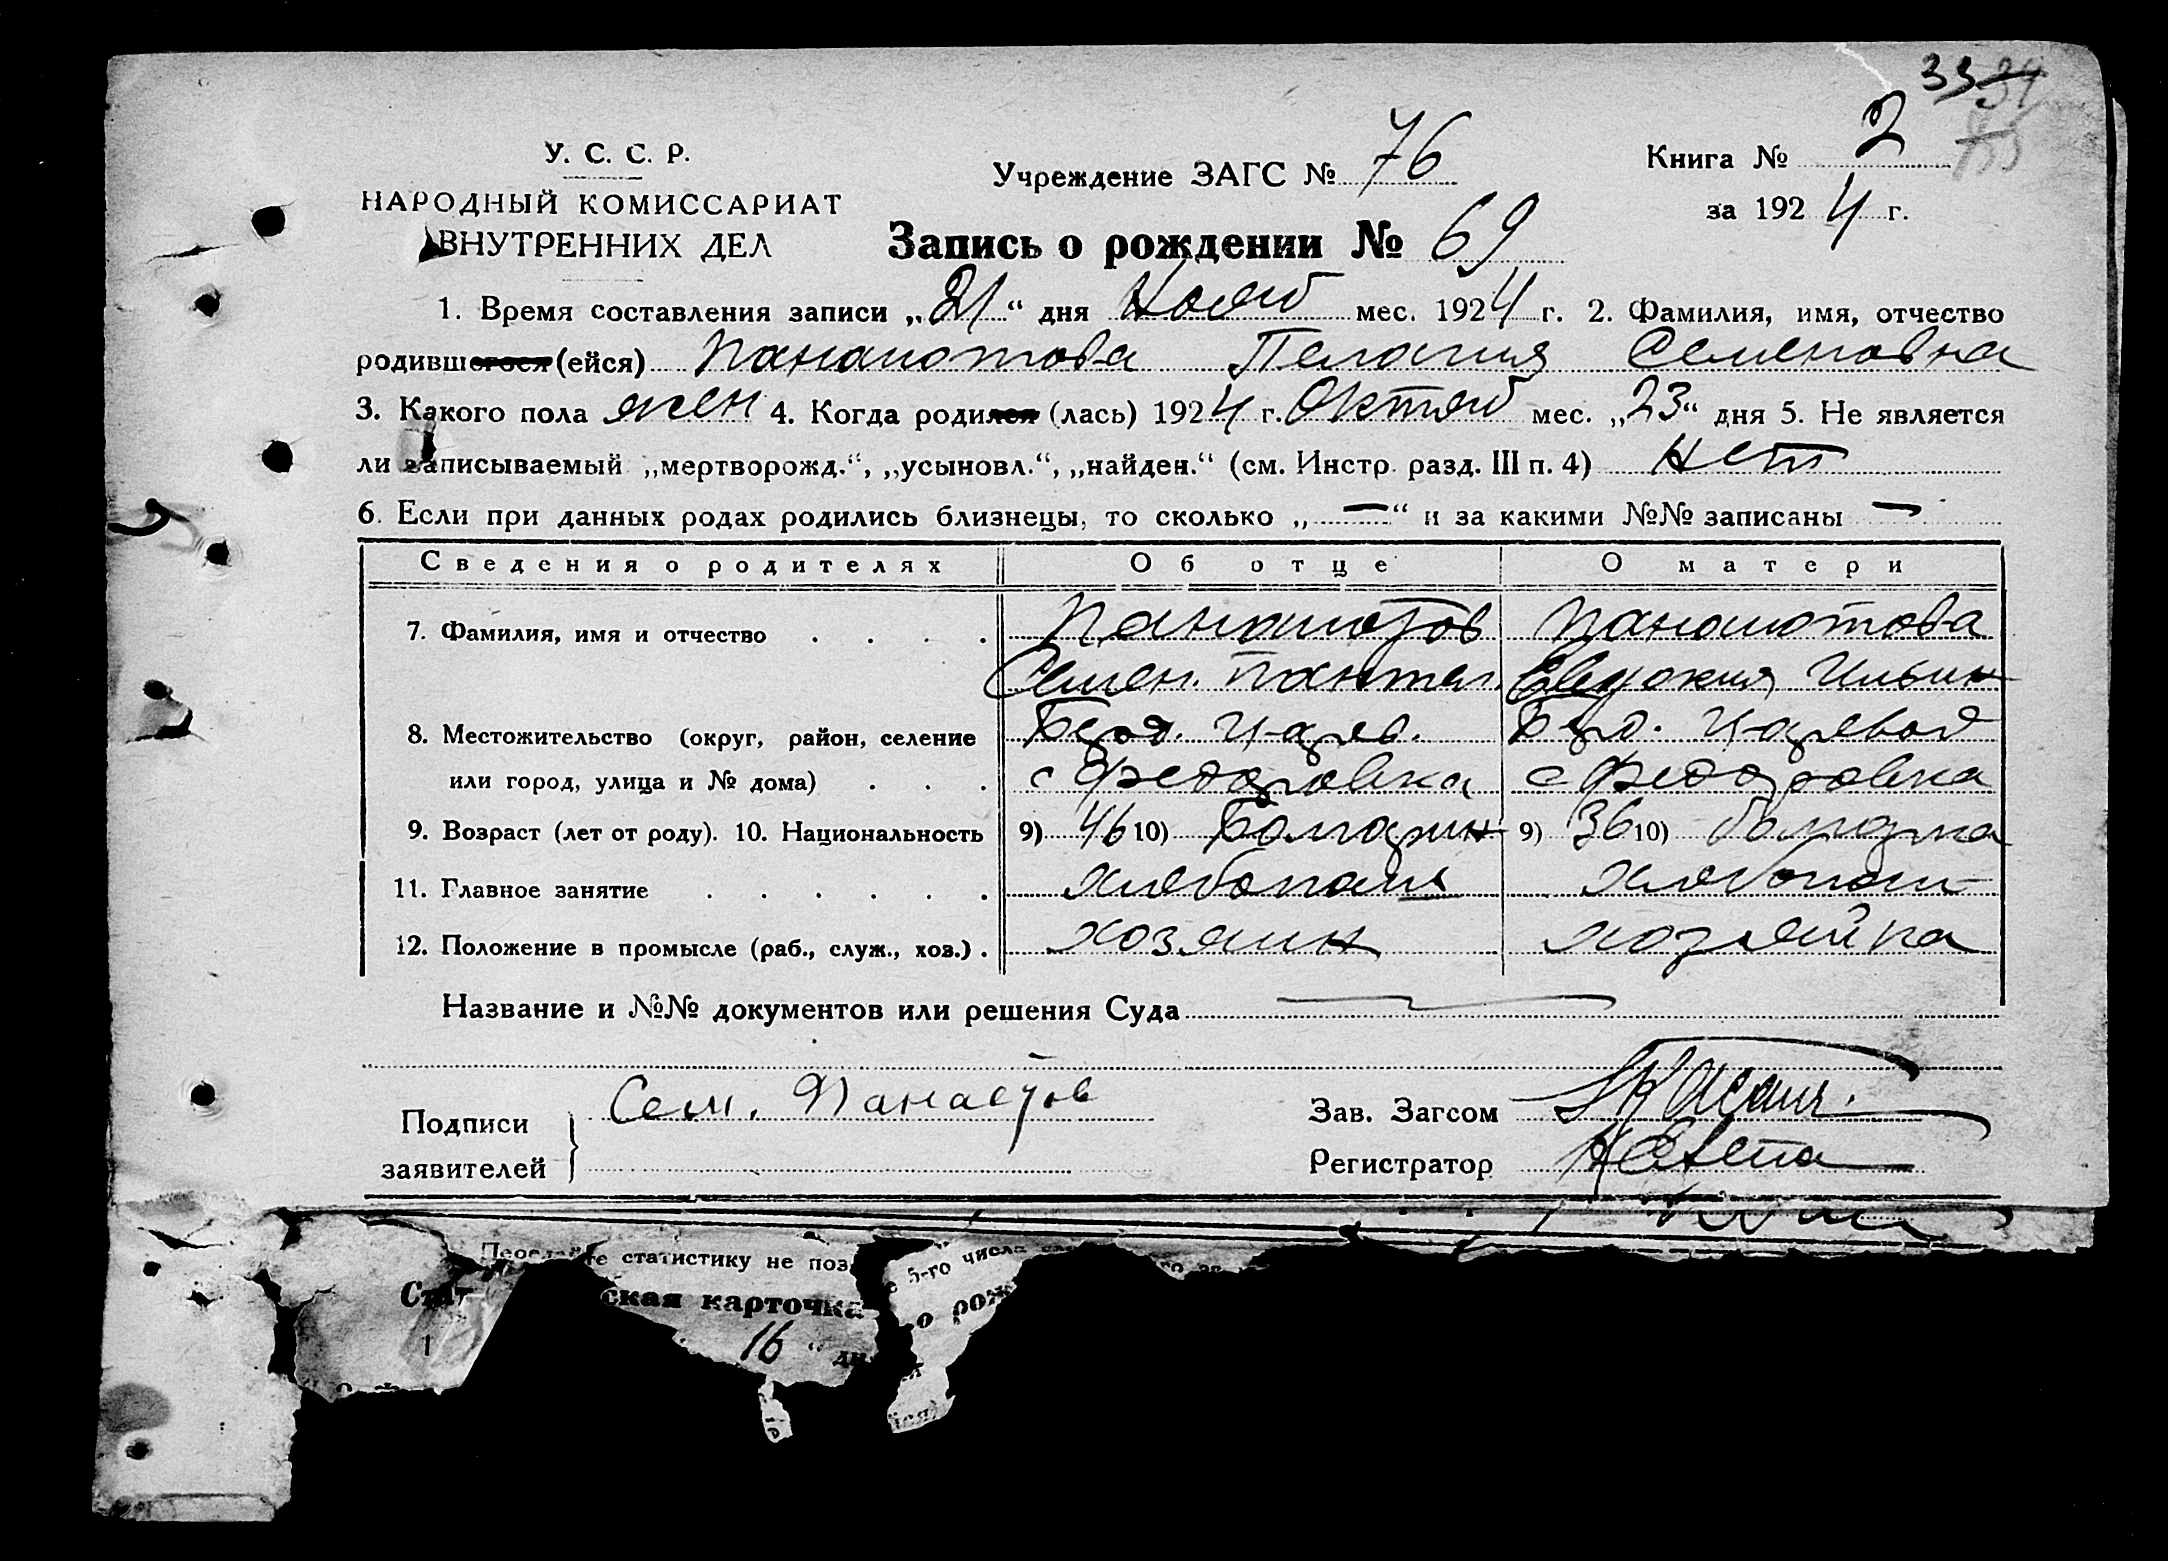 33 34
У. С. С. Р.
НАРОДНЫЙ КОМИССАРИАТ
ВНУТРЕННИХ ДЕЛ
Учреждение ЗАГС № 76
Книга № 2
за 1924 г.
Запись о рождении № 69
1. Время составления записи „21“ дня Нояб мес. 1924 г. 2. Фамилия, имя, отчество
родившегося (ейся) Панаиотова Пелагия Семеновна
3. Какого пола жен 4. Когда родился (лась) 1924 г. Октяб мес. „23“ дня 5. Не является
ли записываемый „мертворожд.“, „усыновл.“, „найден.“ (см. Инстр. разд. III п. 4) нет
6. Если при данных родах родились близнецы, то сколько „—“ и за какими №№ записаны —
Сведения о родителях Об отце О матери
7. Фамилия, имя и отчество . . . . Панаиотов Панаиотова
Семен. Пантел. Евдокия Ильин
8. Местожительство (округ, район, селение Берд. Царев. Берд. Царевод
или город, улица и № дома) . . . с Федоровка с Федоровка
9. Возраст (лет от роду). 10. Национальность 9) 46 10) Болгарин 9) 36 10) болгарка
11. Главное занятие . . . . . . хлебопаш хлебопаш
12. Положение в промысле (раб., служ., хоз.) . хозяин хозяйка
Название и №№ документов или решения Суда —
Подписи
заявителей
Сем. Панаетов
Зав. Загсом
Регистратор
статистику не поз
5-го числа
Стат ская карточка о рож
1 16 “ дн